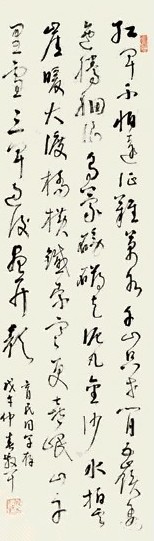 红军不怕远征难万水千山只等闲五岭逶
迤腾细浪乌蒙磅礴走泥丸金沙水拍云
崖暖大渡桥横铁索寒更喜岷山千
里雪三军过后尽开颜
育民同学存
戊午仲春